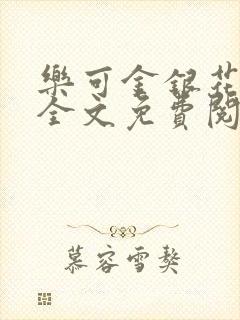 樂可金銀花
全文免費閱
慕容雪獒